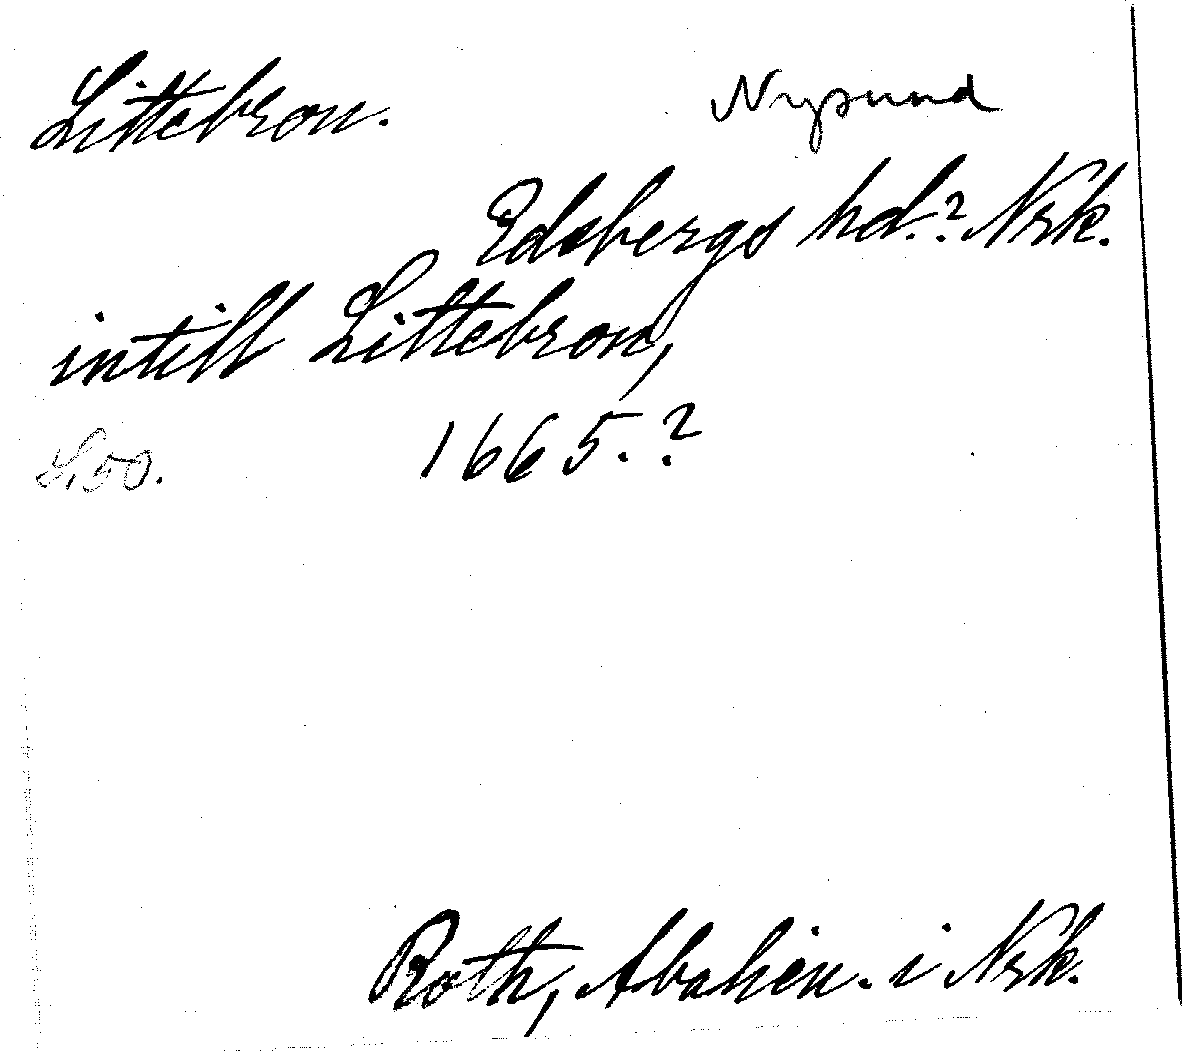 Littebron. Nysund
Edsbergs hd.? Nrk.
intill Littebron,
S. 50. 1665.?
Roth, Abalién. i Nrk.